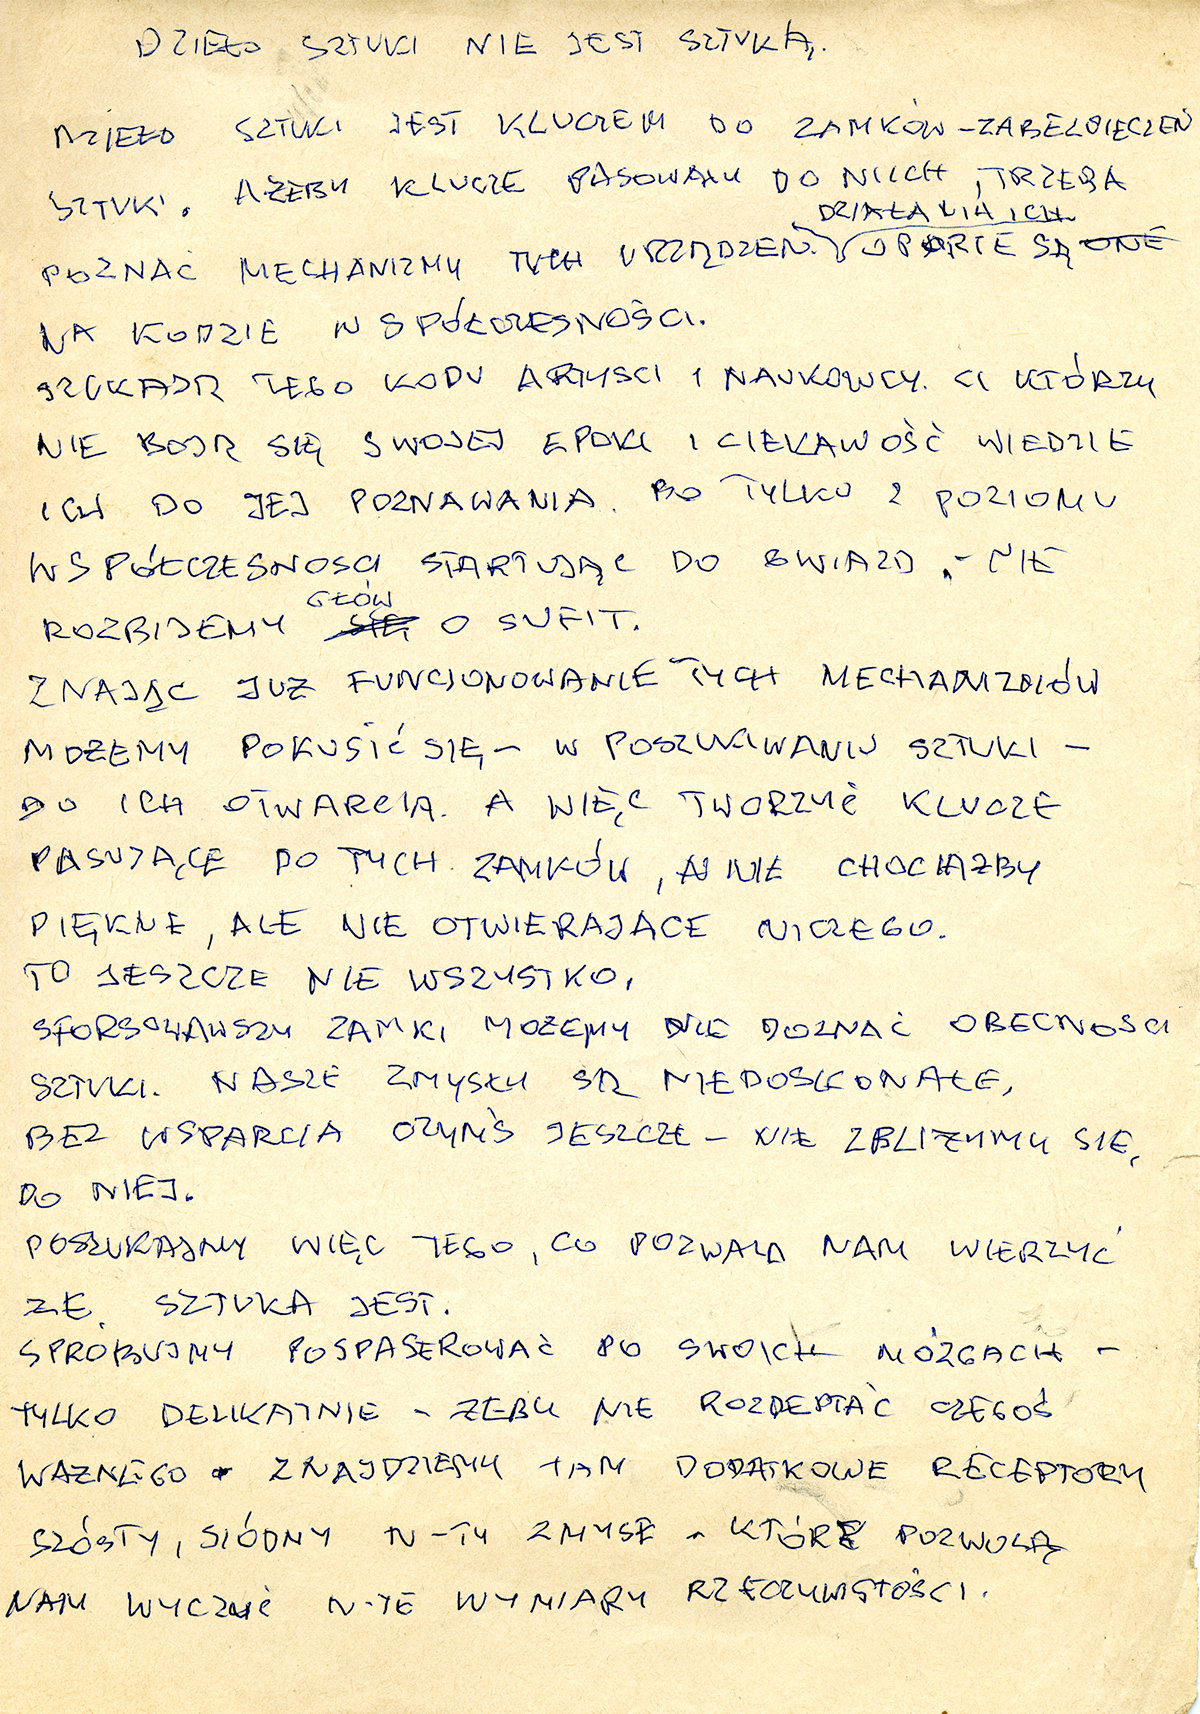 DZIEŁO SZTUKI NIE JEST SZTUKĄ.
DZIEŁO SZTUKI JEST KLUCZEM DO ZAMKÓW – ZABEZPIECZEŃ
SZTUKI. AŻEBY KLUCZE PASOWAŁY DO NIICH, TRZEBA
DZIAŁANIA ICH
POZNAĆ MECHANIZMY TYCH URZĄDZEŃ. OPARTE SĄ ONE
NA KODZIE WSPÓŁCZESNOŚCI.
SZUKAJĄ TEGO KODU ARTYSCI I NAUKOWCY. CI KTÓRZY
NIE BOJĄ SIĘ SWOJEJ EPOKI I CIEKAWOŚĆ WIEDZIE
ICH DO JEJ POZNAWANIA. BO TYLKO Z POZIOMU
WSPÓŁCZESNOSCI STARTUJĄC DO GWIAZD, – NIE
GŁÓW
ROZBIJEMY SIĘ O SUFIT.
ZNAJĄC JUZ FUNCJONOWANIE TYCH MECHANIZMÓW
MOŻEMY POKUSIĆ SIĘ – W POSZUKIWANIU SZTUKI –
DO ICH OTWARCIA. A WIĘC TWORZYĆ KLUCZE
PASUJĄCE DO TYCH ZAMKÓW, A NIE CHOCIAŻBY
PIĘKNE, ALE NIE OTWIERAJĄCE NICZEGO.
TO JESZCZE NIE WSZYSTKO.
SFORSOWAWSZY ZAMKI MOŻEMY NIE DOZNAĆ OBECNOSCI
SZTUKI. NASZE ZMYSŁY SĄ NIEDOSKONAŁE,
BEZ WSPARCIA CZYMŚ JESZCZE – NIE ZBLIŻYMY SIĘ
DO NIEJ.
POSZUKAJMY WIĘC TEGO, CO POZWALA NAM WIERZYĆ
ŻE SZTUKA JEST.
SPRÓBUJMY POSPASEROWAĆ PO SWOICH MÓZGACH –
TYLKO DELIKATNIE – ŻEBY NIE ROZDEPTAĆ CZEGOŚ
WAŻNEGO – ZNAJDZIEMY TAM DODATKOWE RECEPTORY
SZÓSTY, SIÓDMY N-TY ZMYSŁ – KTÓRE POZWOLĄ
NAM WYCZUĆ N-TE WYMIARY RZECZYWISTOŚCI.